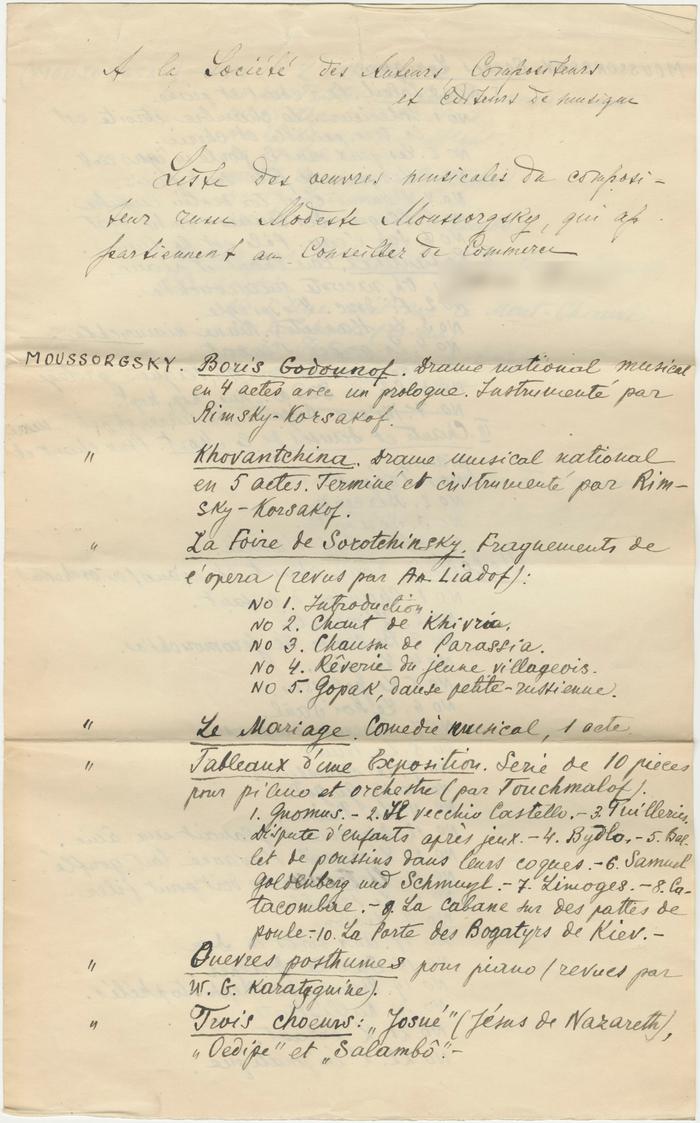 A la Société des Auteurs, Compositeurs
et Editeurs de musique
Liste des oeuvres musicales du composi-
teur russe Modeste Moussorgsky, qui ap-
partiennent au Conseiller de Commerce
MOUSSORGSKY. Boris Godounof. Drame national musical
en 4 actes avec un prologue. Instrumenté par
Rimsky-Korsakof.
" Khovantchina. Drame musical national
en 5 actes. Terminé et instrumenté par Rim-
sky-Korsakof.
" La Foire de Sorotchinsky. Fragments de
l'opera (revus par An. Liadof):
No 1. Introduction.
No 2. Chant de Khivria.
No 3. Chanson de Parassia.
No 4. Rêverie du jeune villageois.
No 5. Gopak, danse petite-russienne.
" Le Mariage. Comedie musical, 1 acte
" Tableaux d'une Exposition. Serie de 10 pièces
pour piano et orchestre (par Touchmalof).
1. Gnomus. - 2. Il vecchio Castello. - 3. Tuilleries.
Dispute d'enfants après jeux. - 4. Bydlo. - 5. Bal-
let de poussins dans leurs coques. - 6. Samuel
Goldenberg und Schmuyl. - 7. Limoges. - 8. Ca-
tacombae. - 9. La cabane sur des pattes de
poule - 10. La Porte des Bogatyrs de Kiev. -
" Ouevres posthumes pour piano (revues par
W. G. Karatyguine).
" Trois choeurs: „Josué" (Jésus de Nazareth),
„Oedipe" et „Salambô". -